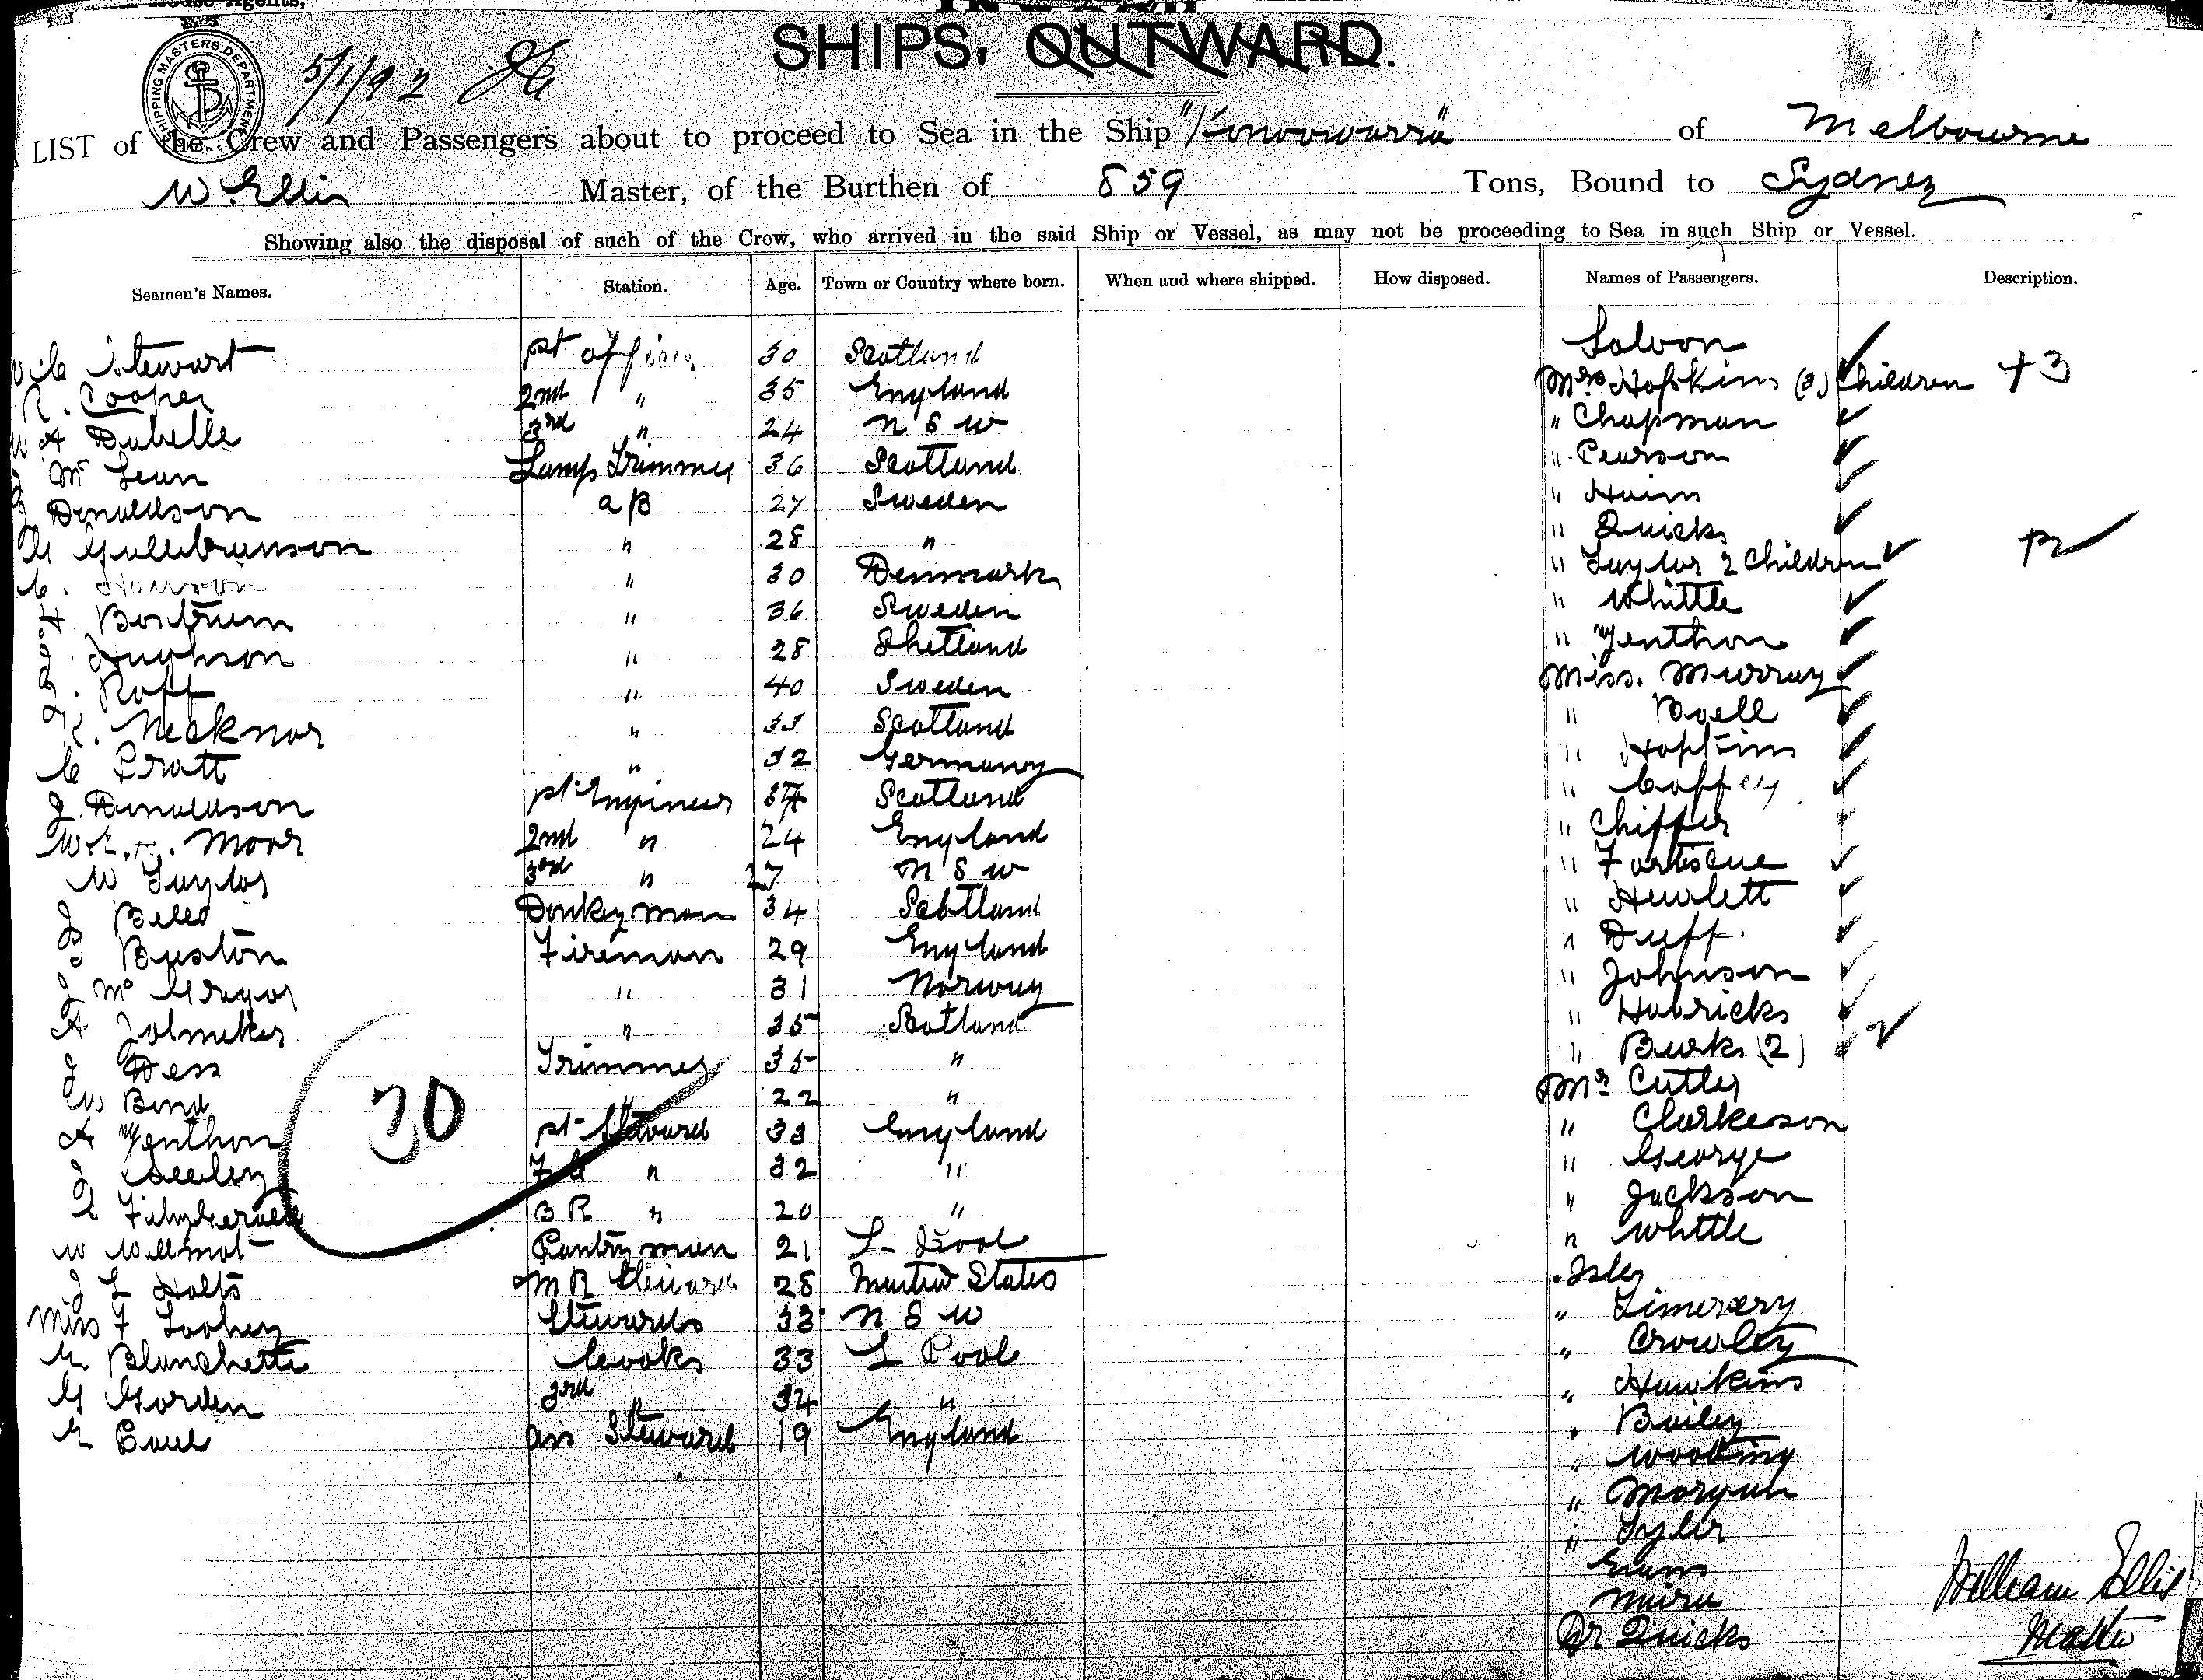 SHIPS, OUTWARD.
SHIPPING MASTERS DEPARTMENT
5/1/92
LIST of the Crew and Passengers about to proceed to Sea in the Ship "Konoowarra" of Melbourne
W. Ellis Master, of the Burthen of 859 Tons, Bound to Sydney
Showing also the disposal of such of the Crew, who arrived in the said Ship or Vessel, as may not be proceeding to Sea in such Ship or Vessel.
Seamen's Names. Station. Age. Town or Country where born. When and where shipped. How disposed. Names of Passengers. Description.
Saloon
Stewart 1st officer 30 Scotland
R. Cooper 2nd " 35 England Mrs Hopkins (3) Children +3
A Dubelle 3rd " 24 N S W " Chapman
Mc Lean Lamp Trimmer 36 Scotland " Pearson
Donaldson A B 27 Sweden " Hain
Gullibranson " 28 " " Quicks
C. Hanson " 30 Denmark " Taylor 2 Children
H. Bostrum " 36 Sweden " Whittle
J. Hughson " 28 Shetland " Yenthon
J. Roff " 40 Sweden Miss. Murray
K. Necknor " 33 Scotland " Boell
C Pratt " 32 Germany " Hopkins
J. Donaldson 1st Engineer 37 Scotland " Coffey
Moor 2nd " 24 England " Chiffer
W Taylor 3rd " 27 N S W " Fortiscue
J Bell Donkeyman 34 Scotland " Hewlett
J Buston Fireman 29 England " Duff.
J Mc Gregor " 31 Norway " Johnson
A Jolmeker " 35 Scotland " Hubricks
J Dess Trimmer 35 " " Burks (2) 2
Bond " 22 " Mr Cutler
A Yenthon 1st Steward 33 England " Clarkeson
J Seeley F C " 32 " " George
B R " 20 " " Jackson
W Willmot Pantryman 21 L Pool " Whittle
J L Holts M R Steward 28 United States " Isley
Miss F Toohey Stewards 33 N S W " Limerery
E Blanchette Cooks 33 L Pool " Crowley
G Gorden 3rd " 34 " " Hawkins
E Paul Ass Steward 19 England " Bailey
30
" Wooding
" Morgan
" Tyler
Evans
Muira
Dr Quicks
William Ellis
Master